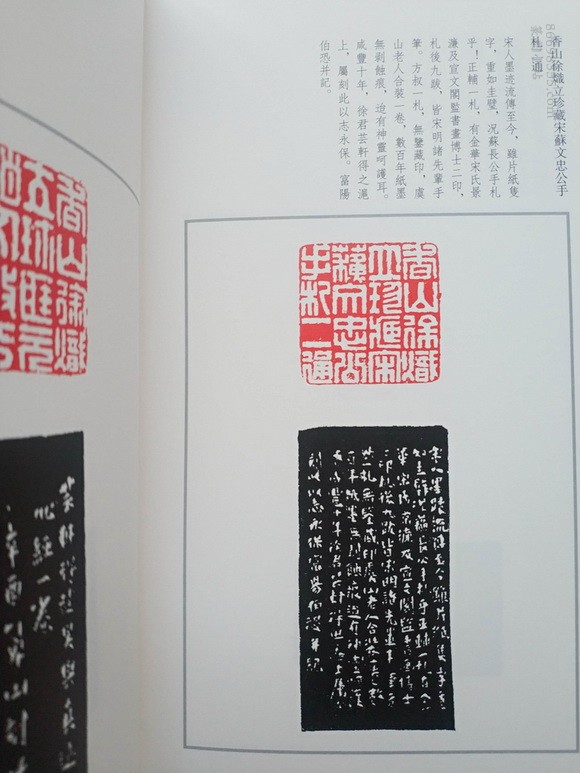 香山徐熾立珍藏宋蘇文忠公手
札一通
宋人墨迹流傳至今，雖片紙隻
字，重如圭璧，况蘇長公手札
乎！正輔一札，有金華宋氏景
濂及宣文閣監書畫博士二印，
札後九跋，皆宋明諸先輩手
筆。方叔一札，無鑒藏印，虞
山老人合裝一卷，數百年紙墨
無剥蝕痕，迨有神靈呵護耳。
咸豐十年，徐君芸軒得之滬
上，屬刻此以志永保。富陽
伯恐并記。
香山徐熾
立珍藏宋
蘇文忠公
手札一通
宋人墨迹流傳至今雖片紙隻字重
如圭璧况蘇長公手札乎正輔一札有金
華宋氏景濂及宣文閣監書畫博士
二印札後九跋皆宋明諸先輩手筆方
叔一札無鑒藏印虞山老人合裝一卷數
百年紙墨無剥蝕痕迨有神靈呵護
耳咸豐十年徐君芸軒得之滬上屬
刻此以志永保富陽伯恐并記
香山徐熾
心經一卷